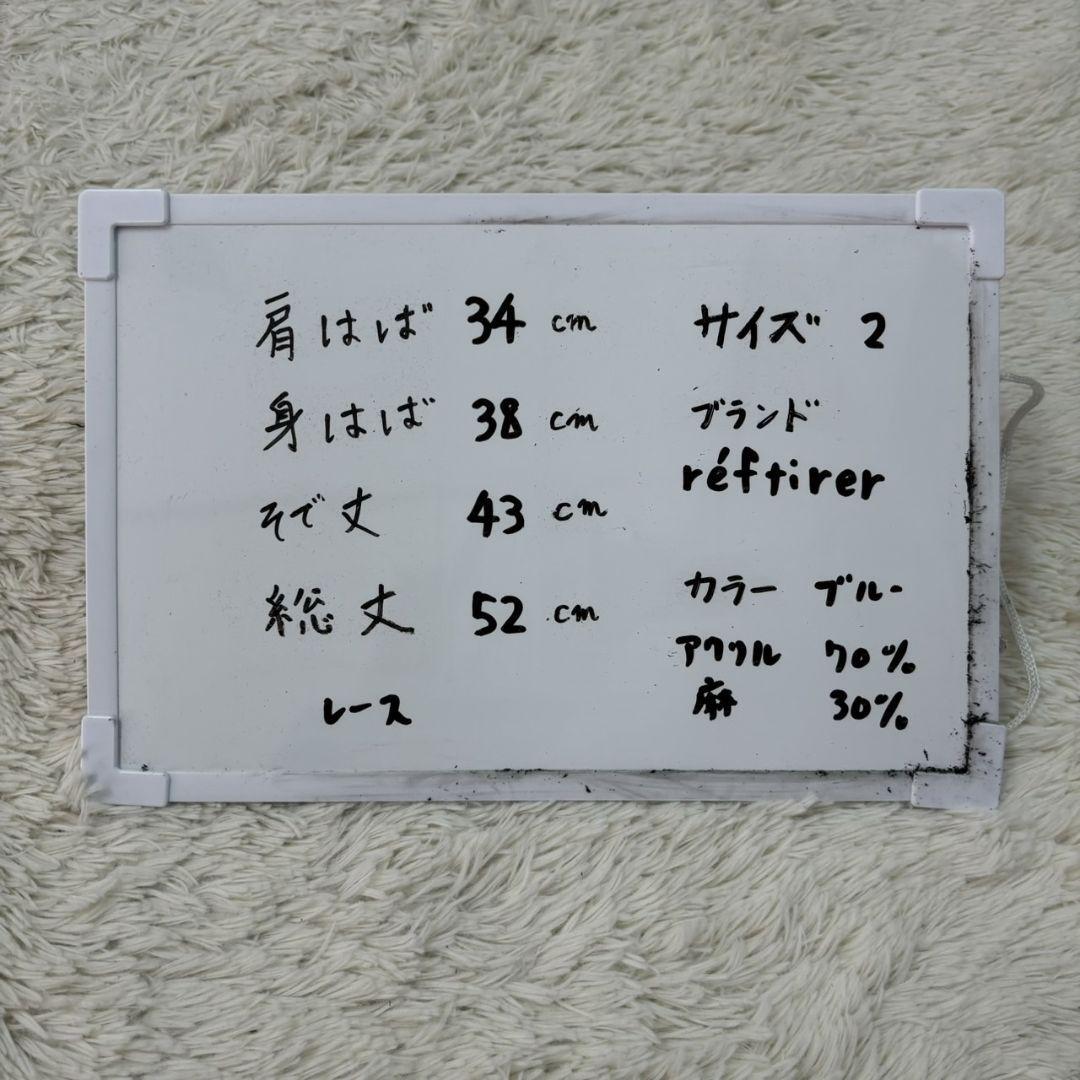 肩はば 34 cm
身はば 38 cm
そで丈 43 cm
総丈 52 cm
レース
サイズ 2
ブランド
réftirer
カラー ブルー
アクリル 70%
麻 30%